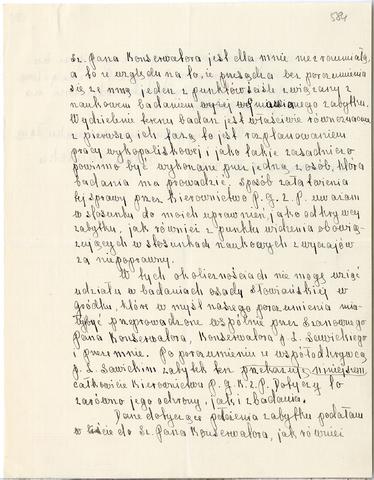 584
Sz. Pana Konserwatora jest dla mnie niezrozumiałą,
a to ze względu na to, iż przesądza bez porozumienia
się ze mną jeden z punktów ściśle związany z
naukowem badaniem wyżej wzmiankowanego zabytku.
Wydzielenie terenu badań jest właściwie równoznaczne
z pierwszą ich fazą to jest rozplanowaniem
pracy wykopaliskowej i jako takie zasadniczo
powinno być wykonane przez jedną z osób, która
badania ma prowadzić. Sposób załatwienia
tej sprawy przez Kierownictwo P. G. Z. P. uważam
w stosunku do moich uprawnień, jako odkrywcy
zabytku, jak również z punktu widzenia obowią-
zujących w stosunkach naukowych zwyczajów
za niepoprawny.
W tych okolicznościach nie mogę wziąć
udziału w badaniach osady słowiańskiej w
Gródku, które w myśl naszego porozumienia mia-
ły być przeprowadzone wspólnie przez Szanownego
Pana Konserwatora, Konserwatora p. L. Sawickiego
i przez mnie. Po porozumieniu z współodkrywcą
p. L. Sawickim zabytek ten przekazuję niniejszem
całkowicie Kierownictwu P. G. K. Z. P. Dotyczy to
zarówno jego ochrony, jak i zbadania.
Dane dotyczące położenia zabytku podałam
w do Sz. Pana Konserwatora, jak również